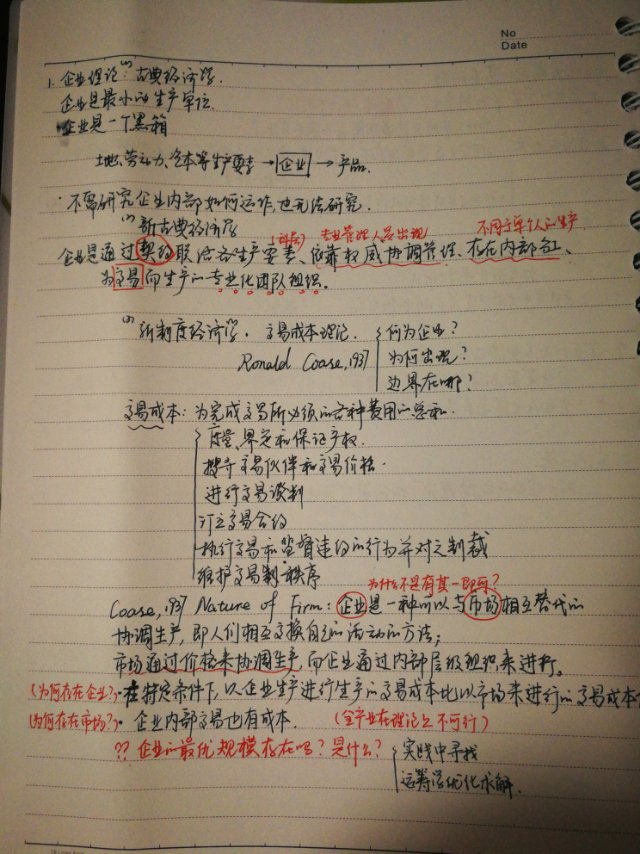 No
Date
1. 企业理论 (1) 古典经济学.
企业是最小的生产单位.
企业是一个黑箱
土地、劳动力、资本等生产要素→企业→产品.
·不需研究企业内部如何运作,也无法研究.
(2) 新古典经济学
专业管理人员出现 不同于单个人的生产
企业是通过契约联结各生产要素、依靠权威协调管理、存在内部分工、
为交易而生产的专业化团队组织。
(3) 新制度经济学. 交易成本理论. 何为企业?
Ronald Coase, 1937 为何出现?
边界在哪?
交易成本: 为完成交易所必须的各种费用的总和.
度量、界定和保证产权.
搜寻交易伙伴和交易价格.
进行交易谈判
订立交易合约
执行交易和监督违约的行为并对之制裁
维护交易制 秩序
为什么不是有其一即可?
Coase, 1937 Nature of Firm: 企业是一种可以与市场相互替代的
协调生产, 即人们相互交换自己的活动的方法;
市场通过价格来协调生产, 而企业通过内部层级组织来进行。
(为何存在企业?)·在特定条件下, 以企业生产进行生产的交易成本比以市场来进行的交易成本
(为何存在市场?)·企业内部交易也有成本. (全产业在理论上不可行)
?? 企业的最优规模存在吗? 是什么? 实践中寻找
运筹学优化求解.